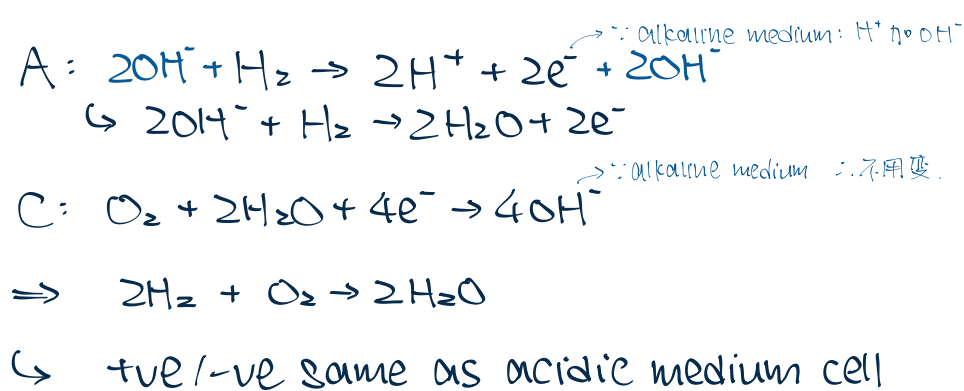 ∵ alkaline medium: H⁺ 加 OH⁻
A: 2OH⁻ + H₂ → 2H⁺ + 2e⁻ + 2OH⁻
↳ 2OH⁻ + H₂ → 2H₂O + 2e⁻
∵ alkaline medium ∴ 不用变.
C: O₂ + 2H₂O + 4e⁻ → 4OH⁻
⇒ 2H₂ + O₂ → 2H₂O
↳ +ve/-ve same as acidic medium cell